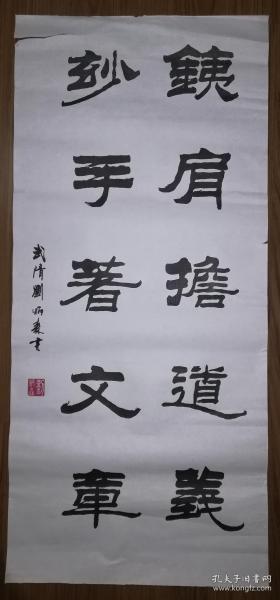 銕肩擔道義
玅手著文章
武清劉炳森書
孔夫子旧书网
kongfz.com